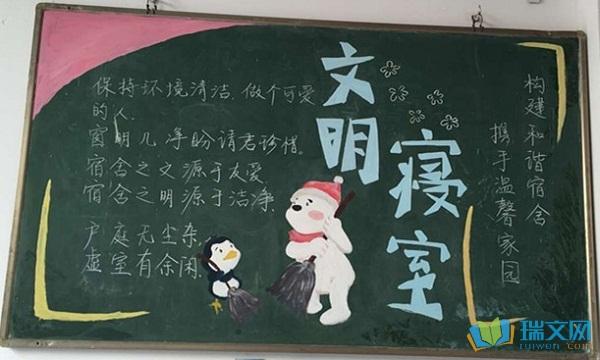 文明寝室
保持环境清洁.做个可爱
的人.
窗明几净盼请君珍惜。
宿舍之文源于友爱
宿舍之明源于洁净.
户庭无尘杂.
虚室有余闲.
构建和谐宿舍
携手温馨家园
瑞文网
ruiwen.com